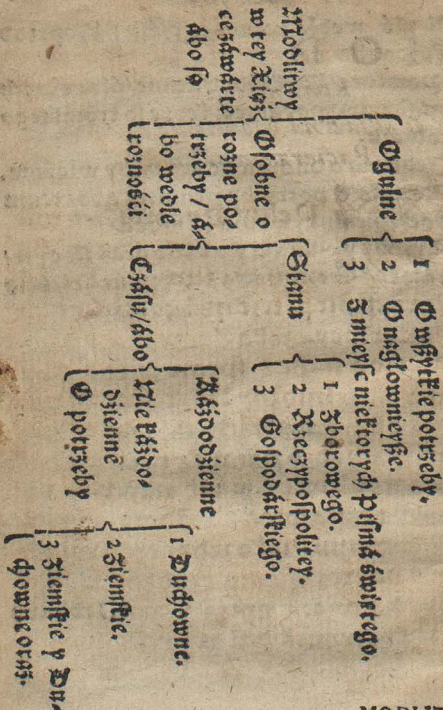 Modlitwy
w tey Xiąż
ce záwárte
ábo są
Ogulne
1 O wszytkie potrzeby.
2 O nagłownieysze
3 Z mieysc niektorych Pismá świętego.
Osobne o
rozne po⸗
trzeby / á⸗
bo wedle
roznośći
Stanu
1 Zborowego.
2 Rzeczypospolitey.
3 Gospodárskiego.
Czásu / ábo
Káżdodźienne
Nie káżdo⸗
dźienné
O potrzeby
1 Duchowne.
2 Ziemskie.
3 Ziemskie y Du⸗
chowne oraz.